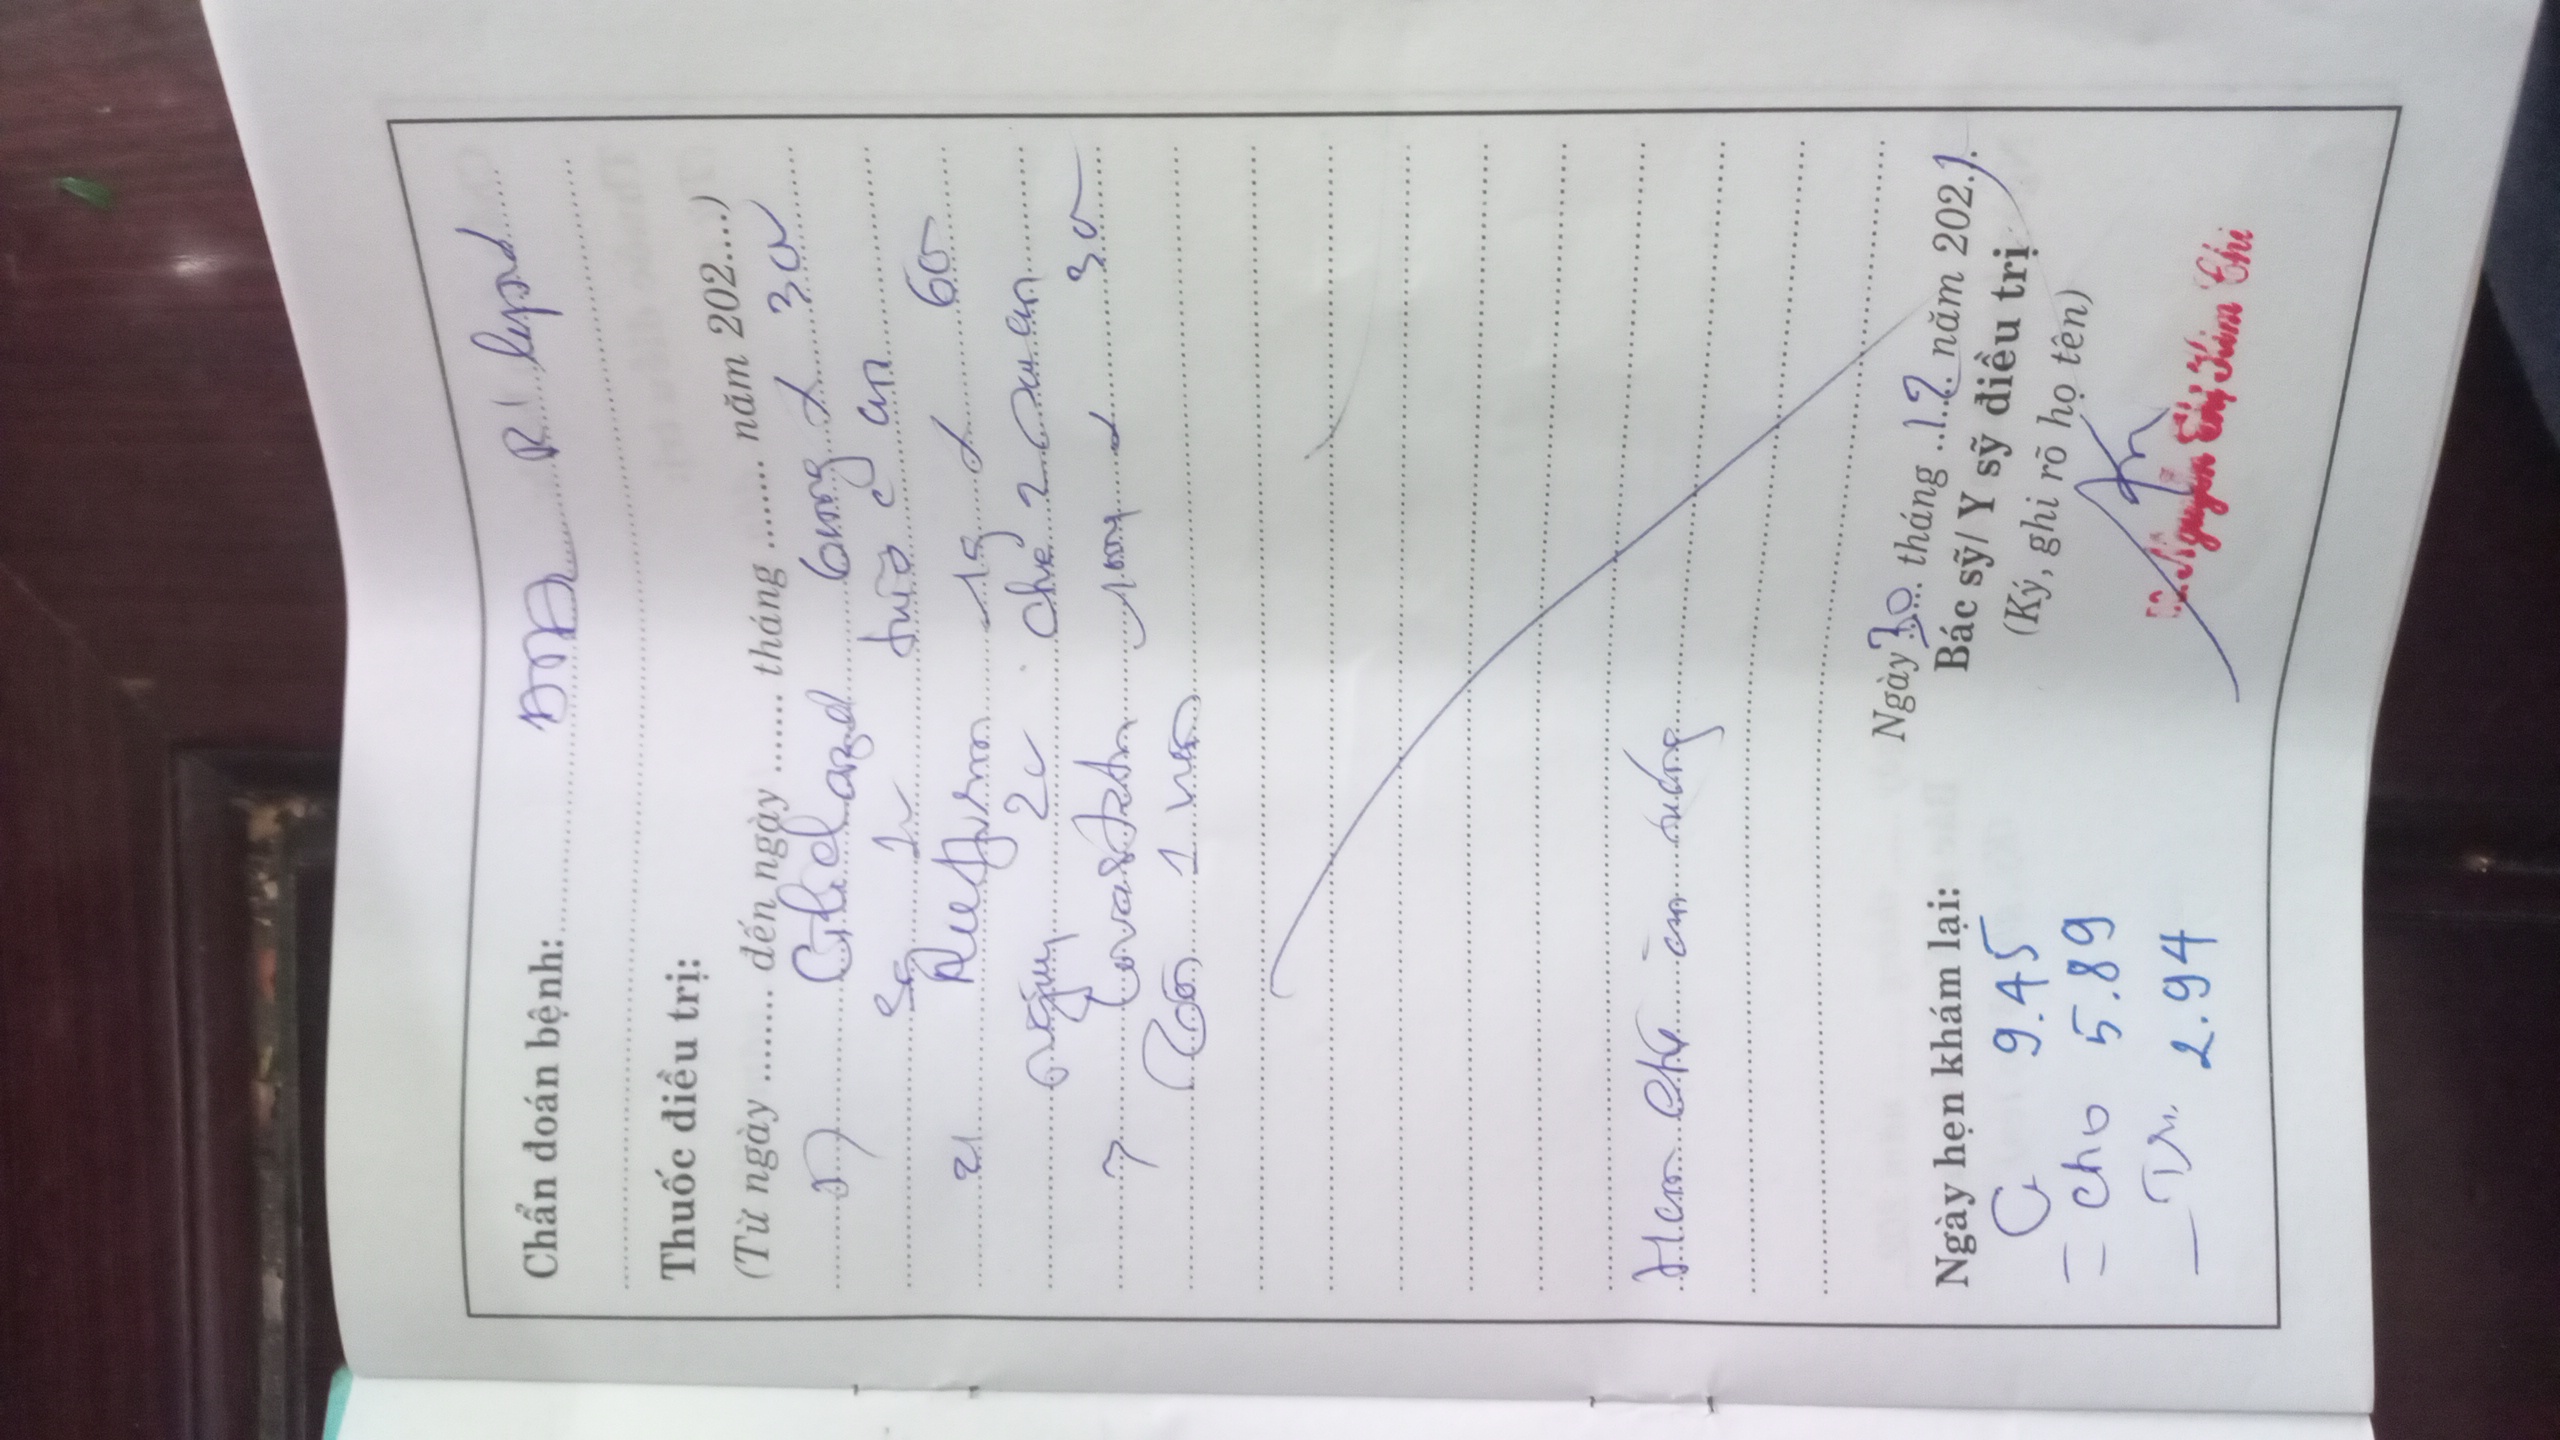 Chẩn đoán bệnh: ĐTĐ Rl lipid
Thuốc điều trị:
(Từ ngày ....... đến ngày ....... tháng ....... năm 202...)
Gliclazid 60mg x 30v
Sg 1v trước ăn
2) Metformin 1g x 60
ngày 2v chia 2 sau ăn
Lovastatin 10mg x 30
Tối 1 viên
Hạn chế ăn uống
Ngày 30 tháng 12 năm 202
Bác sỹ/ Y sỹ điều trị
(Ký, ghi rõ họ tên)
Nguyễn Thị Kim Chi
Ngày hẹn khám lại:
G 9.45
= Cho 5.89
- Tri 2.94